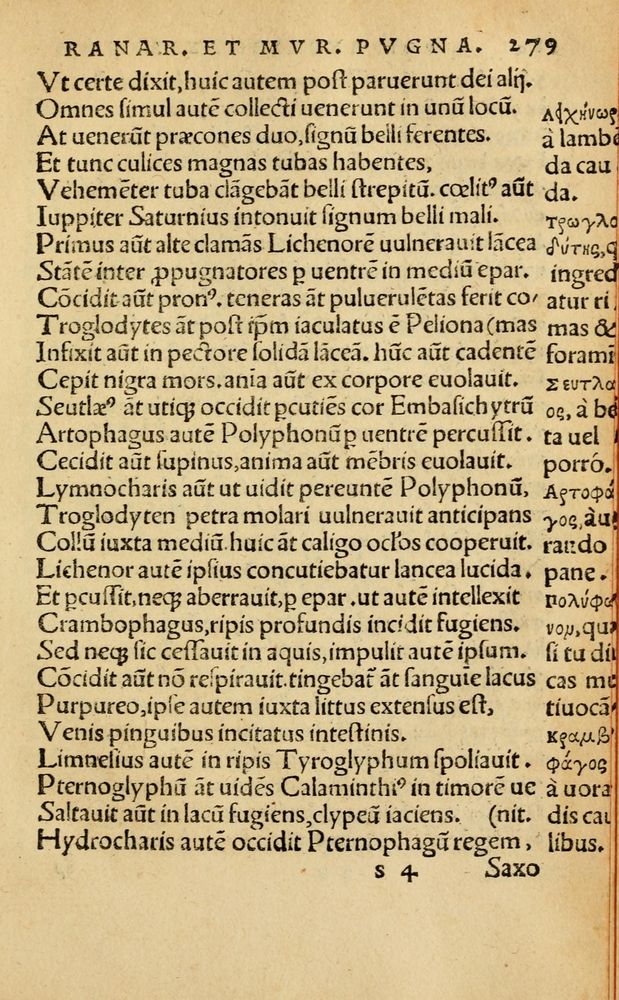 RANAR. ET MVR. PVGNA. 279
Vt certe dixit, huic autem poſt paruerunt dei alij.
Omnes ſimul autẽ collecti uenerunt in unũ locũ.
At uenerũt præcones duo, ſignũ belli ferentes.
Et tunc culices magnas tubas habentes,
Vehemẽter tuba clãgebãt belli ſtrepitũ. cœlitꝰ aũt
Iuppiter Saturnius intonuit ſignum belli mali.
Primus aũt alte clamãs Lichenorẽ uulnerauit lãcea
Stãtẽ inter ꝓpugnatores p uentrẽ in mediũ epar.
Cõcidit aũt pronꝰ. teneras ãt puluerulẽtas ferit co-
Troglodytes ãt poſt ip̃m iaculatus ẽ Peliona (mas
Infixit aũt in pectore ſolidã lãceã. hũc aũt cadentẽ
Cepit nigra mors. aĩa aũt ex corpore euolauit.
Seutlæꝰ ãt utiqꝫ occidit pcutiẽs cor Embaſichytrũ
Artophagus autẽ Polyphonũ p uentrẽ percuſſit.
Cecidit aũt ſupinus, anima aũt mẽbris euolauit.
Lymnocharis aũt ut uidit pereuntẽ Polyphonũ,
Troglodyten petra molari uulnerauit anticipans
Collũ iuxta mediũ. huic ãt caligo oc̃los cooperuit.
Lichenor autẽ ipſius concutiebatur lancea lucida.
Et pcuſſit, neqꝫ aberrauit, p epar. ut autẽ intellexit
Crambophagus, ripis profundis incidit fugiens.
Sed neqꝫ ſic ceſſauit in aquis, impulit autẽ ipſum.
Cõcidit aũt nõ reſpirauit. tingebat̃ ãt ſanguie lacus
Purpureo, ipſe autem iuxta littus extenſus eſt,
Venis pinguibus incitatus inteſtinis.
Limneſius autẽ in ripis Tyroglyphum ſpoliauit.
Pternoglyphũ ãt uidẽs Calaminthiꝰ in timorẽ ue
Saltauit aũt in lacũ fugiens, clypeũ iaciens. (nit.
Hydrocharis autẽ occidit Pternophagũ regem,
s 4 Saxo
λειχήνωρ
à lambẽ
da cau
da.
τρωγλο
δύτης, q
ingred
atur ri
mas &
forami
Σευτλα
ος, à be
ta uel
porró.
Αρτοφά
γος, àu
rando
pane.
πολύφω
νον, qu
ſi tu di
cas m
tiuocã
κραμβ
φάγος
à uora
dis cau
libus.